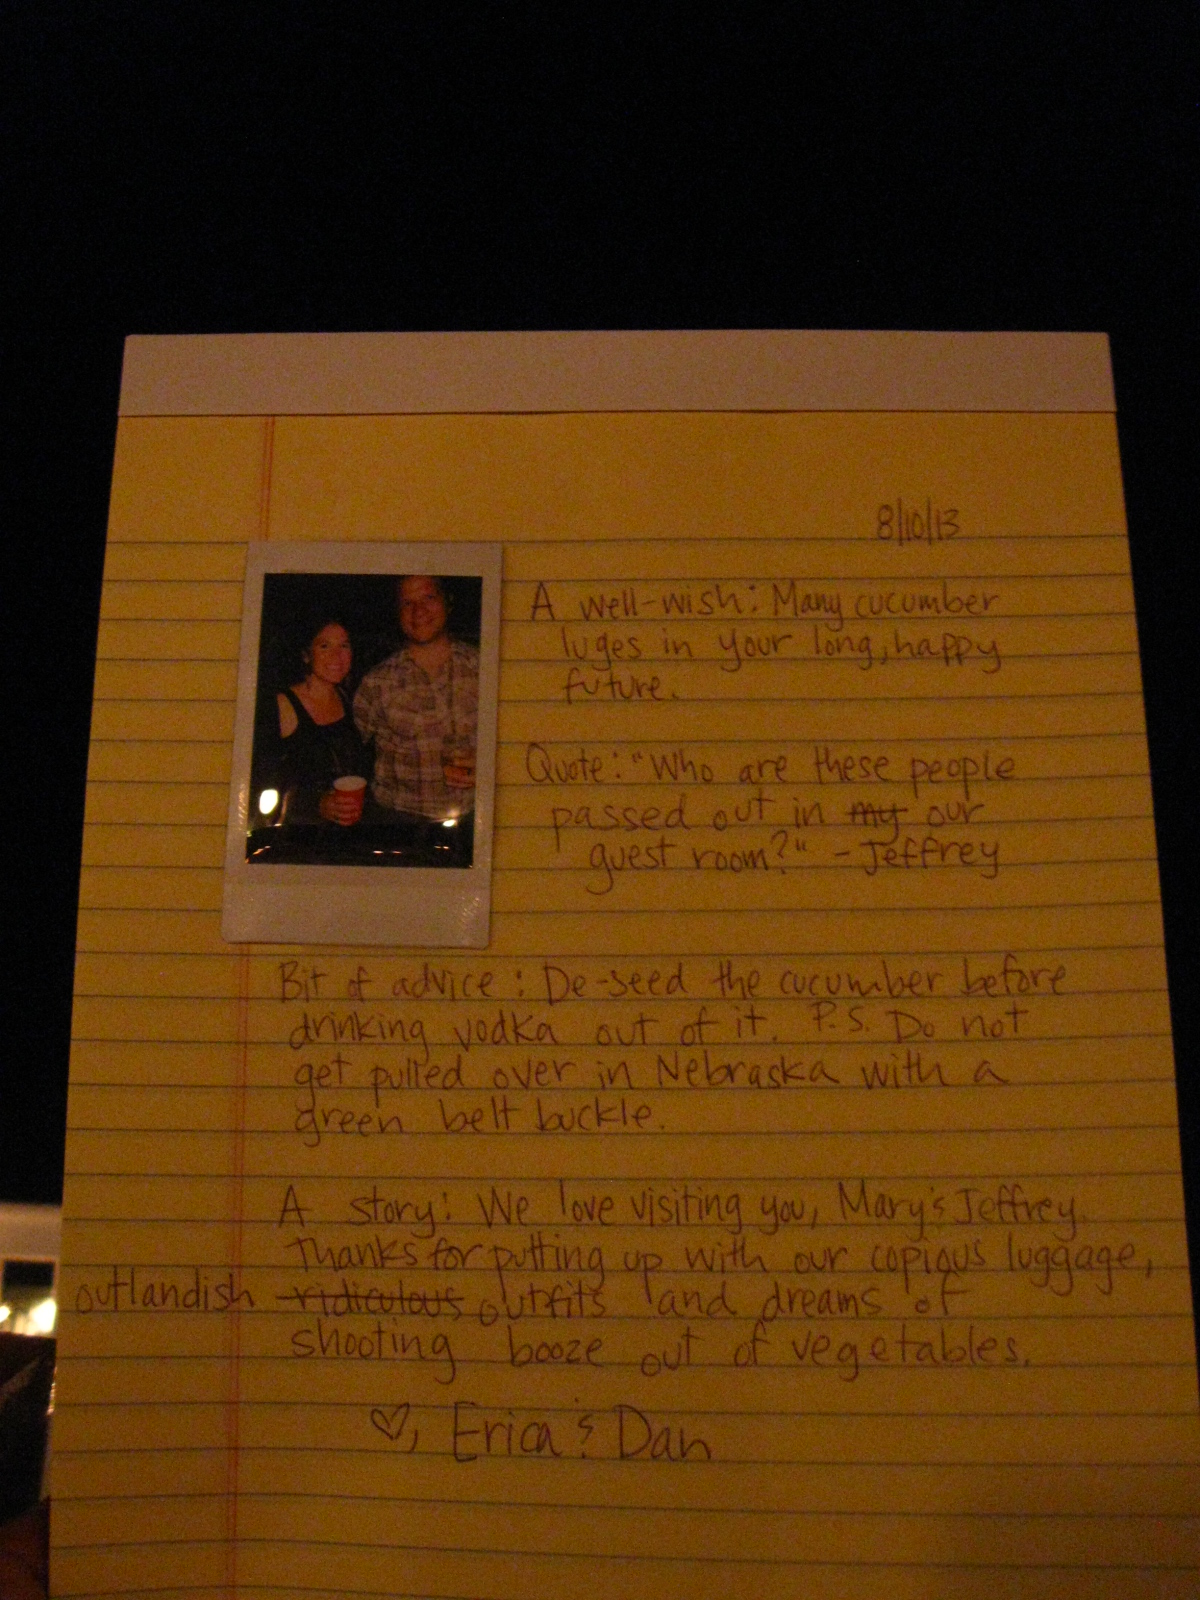 8/10/13
A well-wish: Many cucumber
luges in your long, happy
future.
Quote: "Who are these people
passed out in my our
guest room?" - Jeffrey
Bit of advice: De-seed the cucumber before
drinking vodka out of it. P.S. Do not
get pulled over in Nebraska with a
green belt buckle.
A story: We love visiting you, Mary & Jeffrey.
Thanks for putting up with our copious luggage,
outlandish ridiculous outfits and dreams of
shooting booze out of vegetables.
♡, Erica & Dan